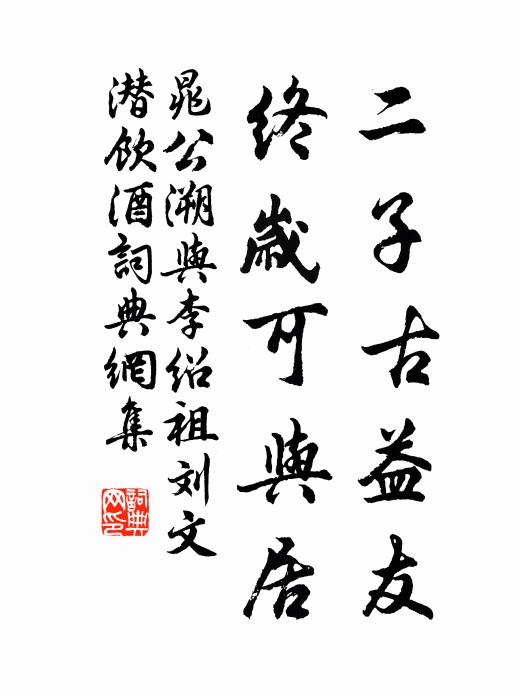 二子古益友
终歲可與居
晁公溯與李绍祖刘文
潜飲酒詞典網集
詞典网印